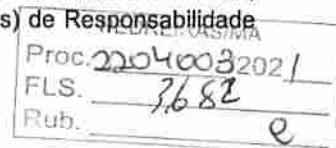 s) de Responsabilidade
Proc. 2204003202/
FLS. 3682
Rub. e